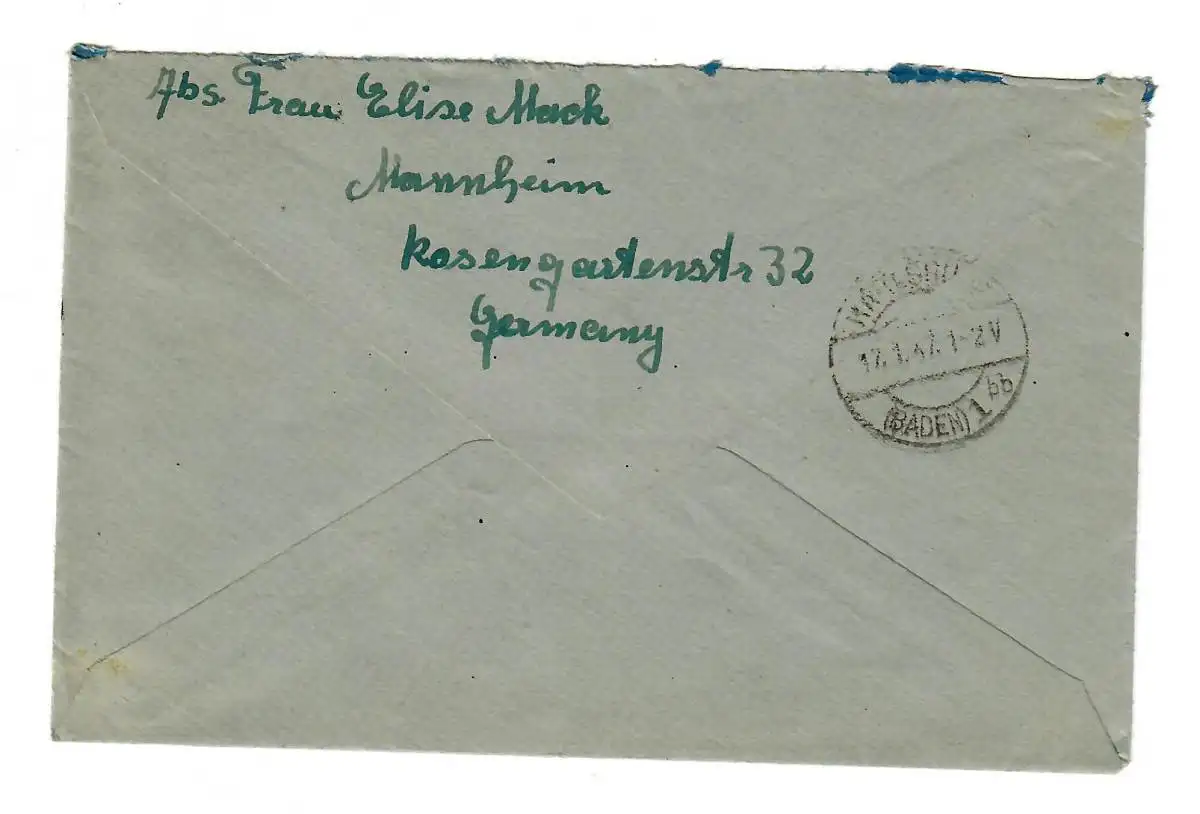 Abs. Frau Elise Mack
Mannheim
Rosengartenstr 32
Germany
17.1.47.1-2V
(BADEN) 1 bb